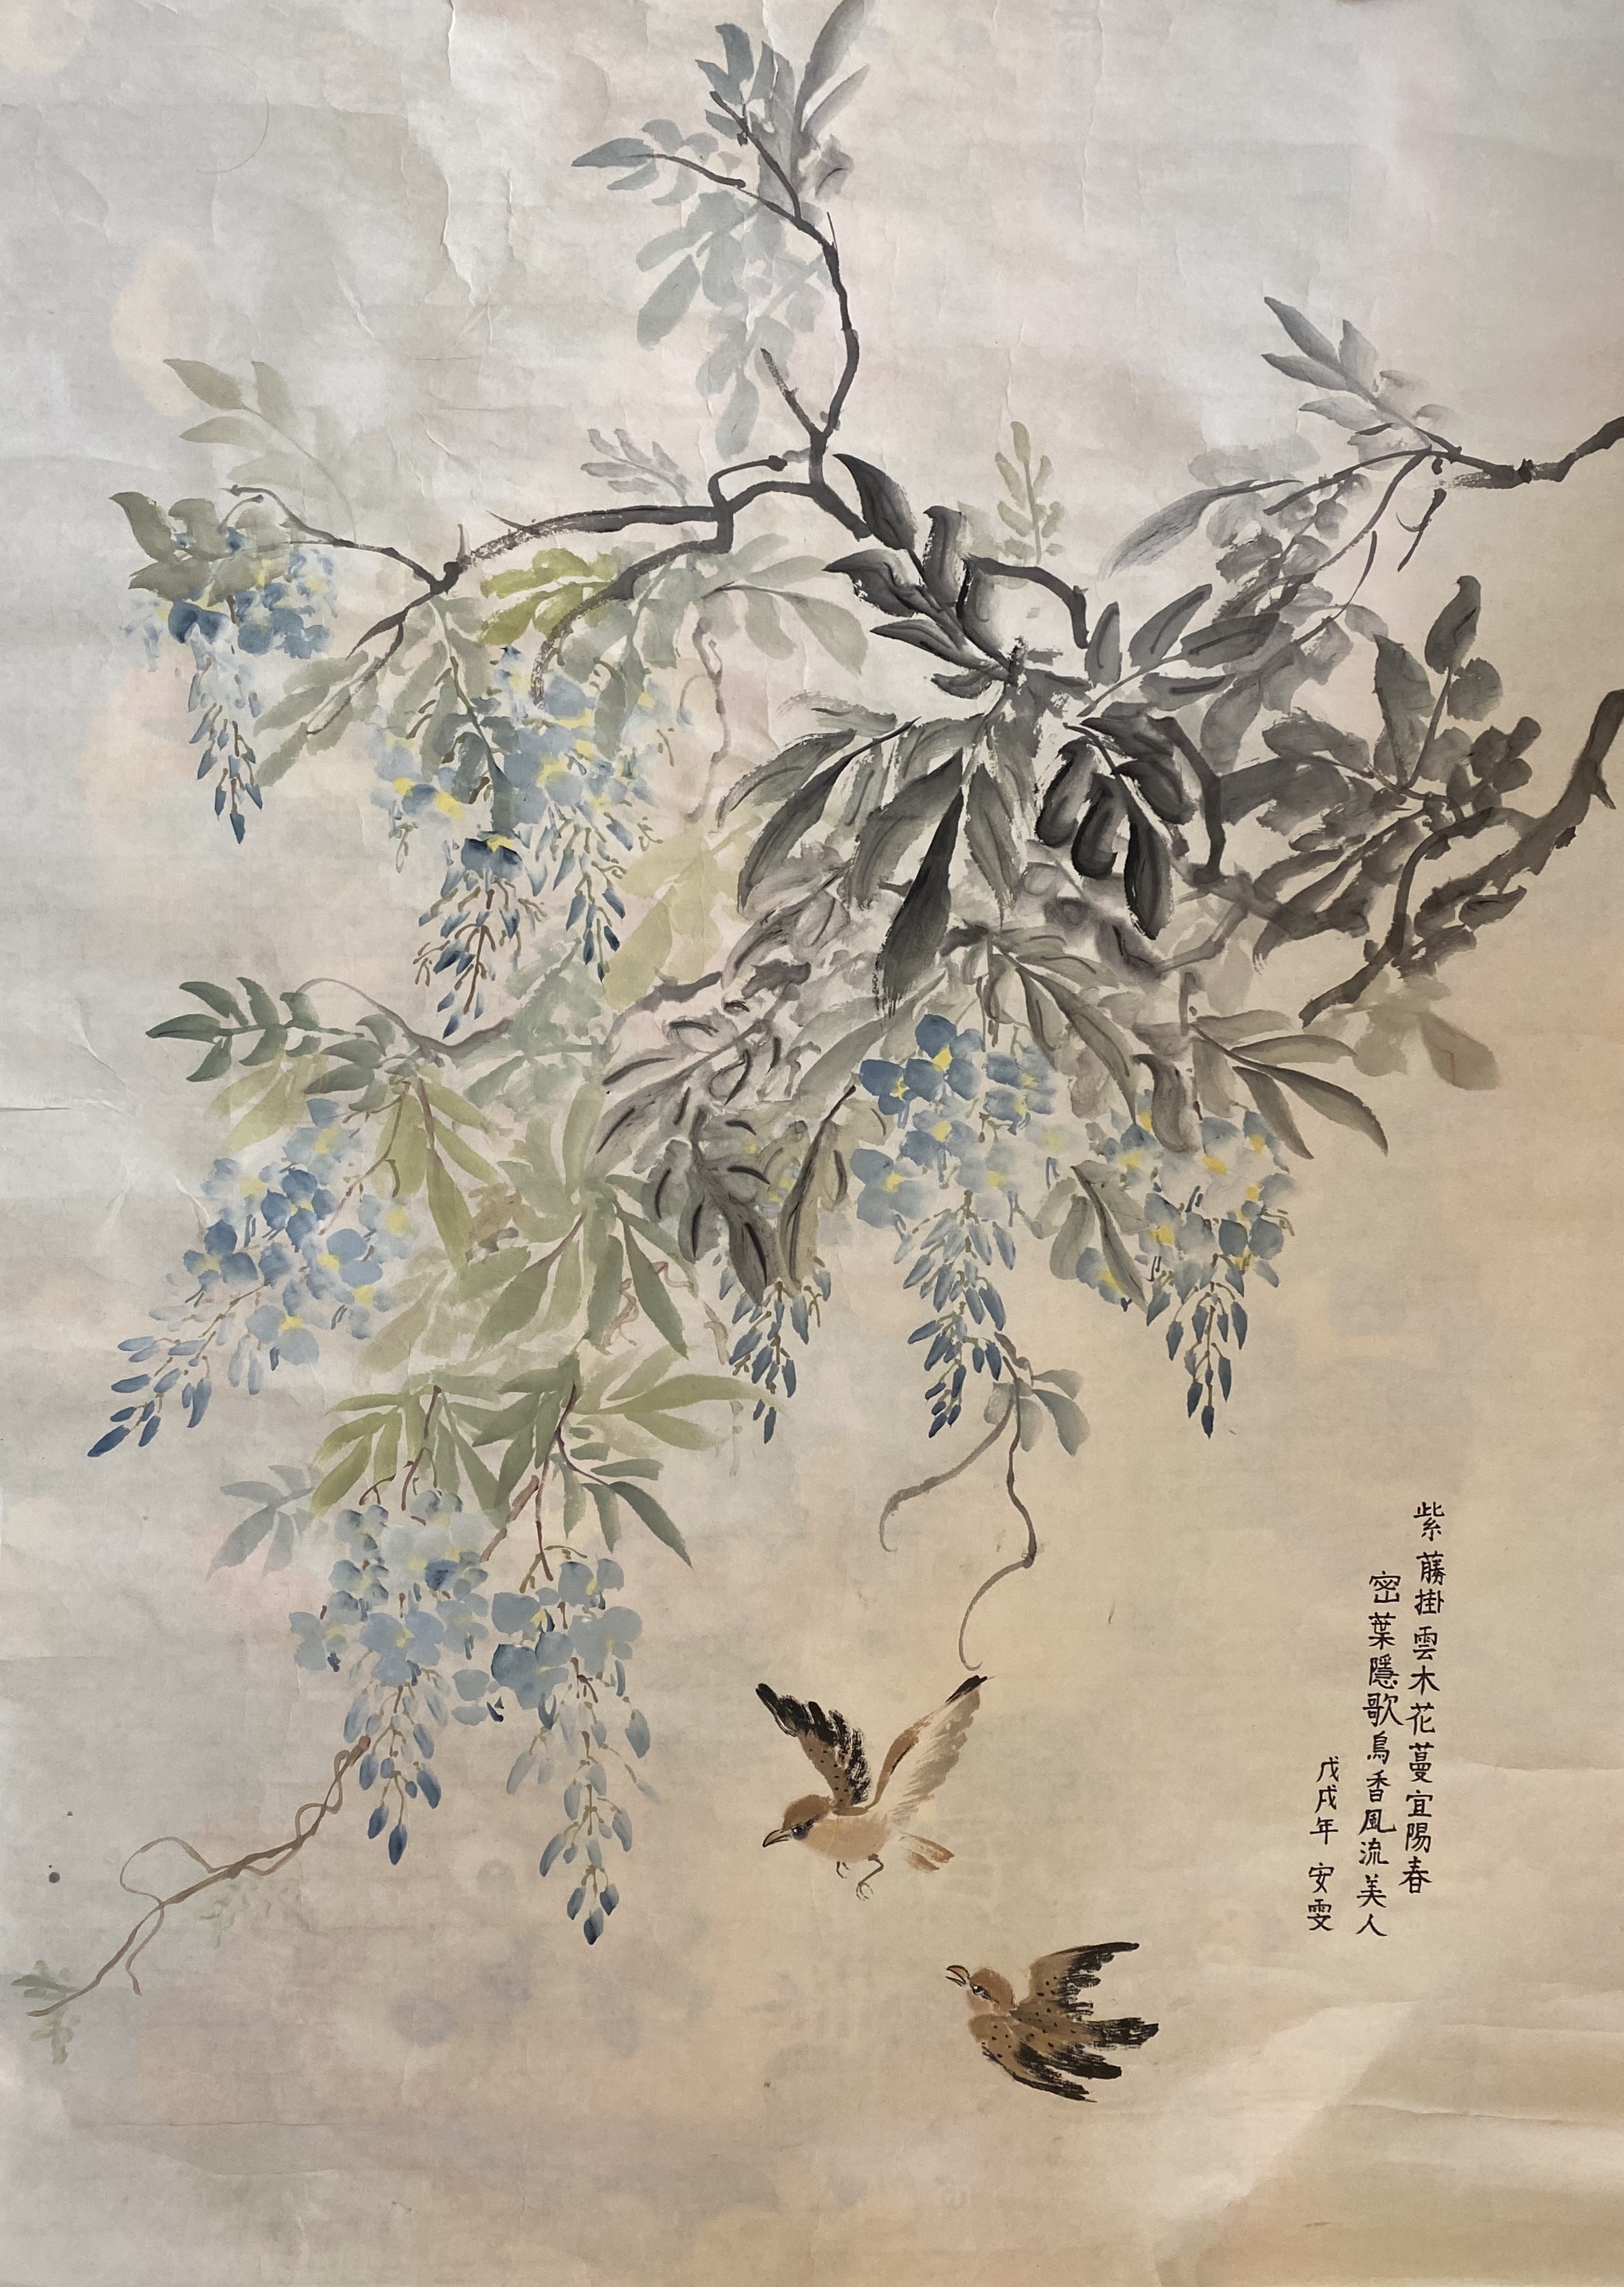 紫藤掛雲木花蔓宜陽春
密葉隱歌鳥香風流美人
戊戌年 安雯